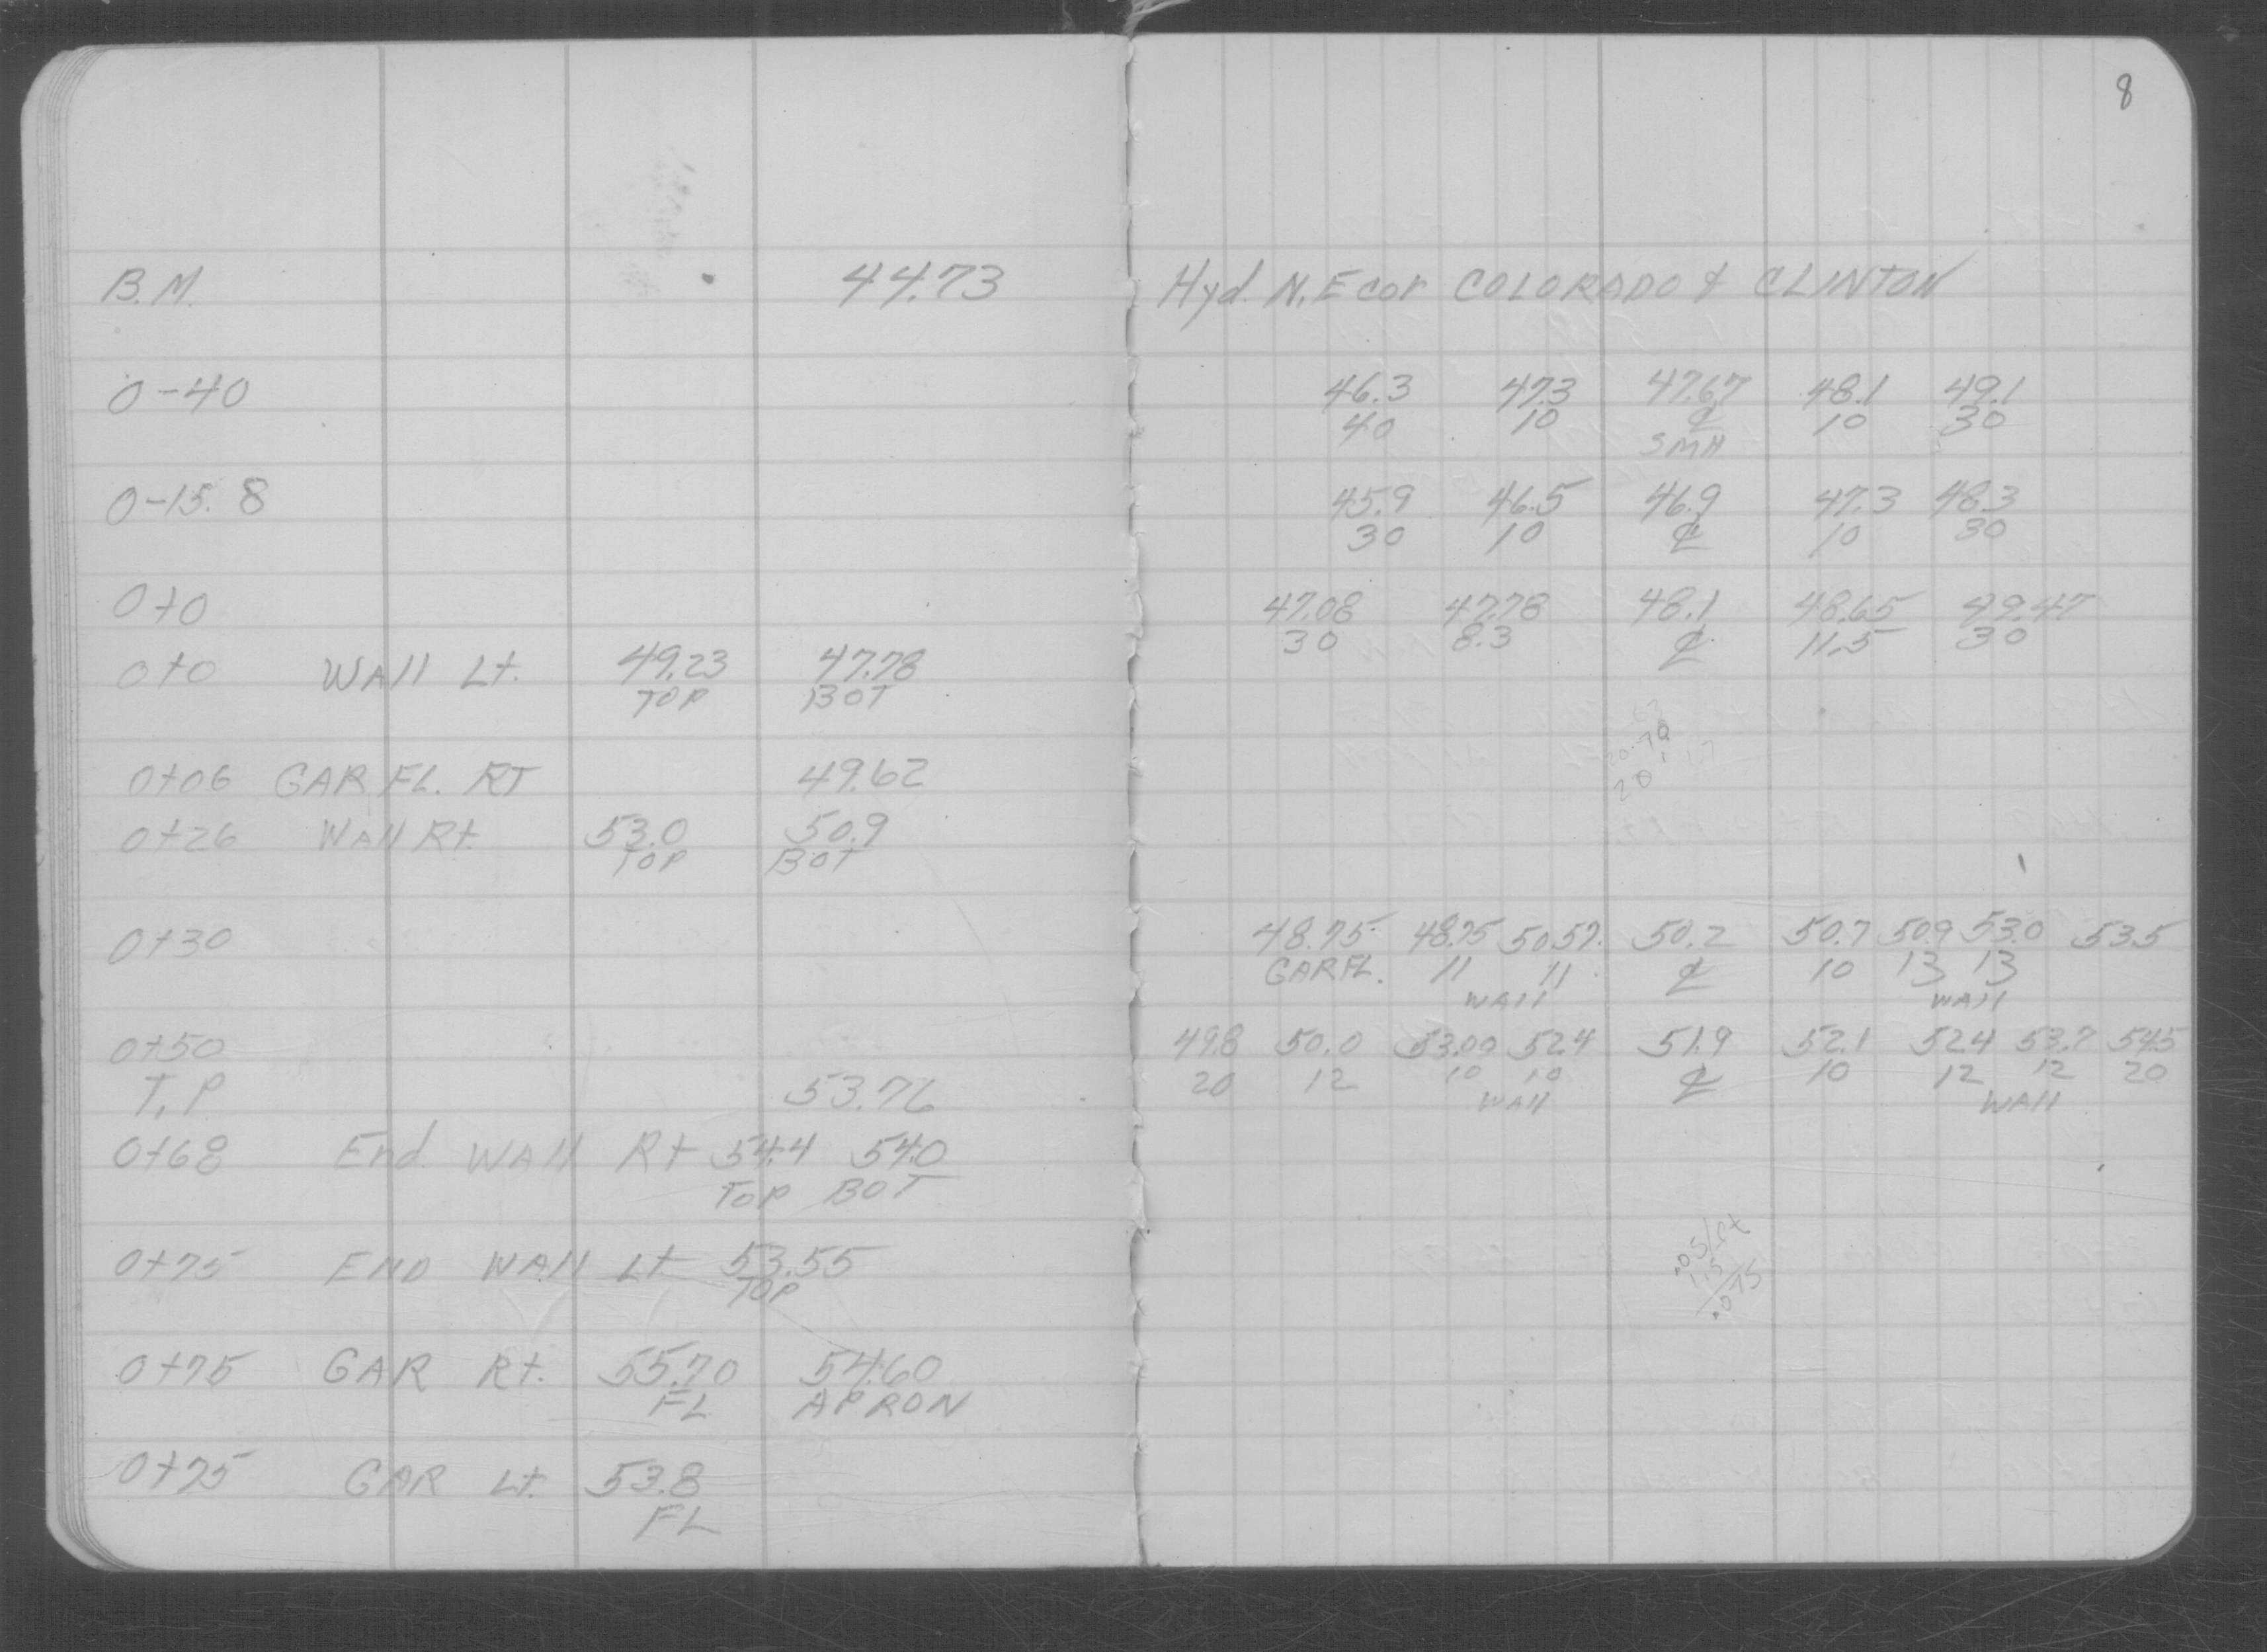 8
B.M. 44.73 Hyd. N.E cor COLORADO & CLINTON
0-40 46.3 47.3 47.67 48.1 49.1
40 10 ℄ 10 30
SMH
0-15.8 45.9 46.5 46.9 47.3 48.3
30 10 ℄ 10 30
0+0 47.08 47.78 48.1 48.65 49.47
30 8.3 ℄ 11.5 30
0+0 WAll Lt. 49.23 47.78
TOP BOT
0+06 GAR FL. RT 49.62
0+26 WAll Rt. 53.0 50.9
TOP BOT
0+30 48.75 48.75 50.57 50.2 50.7 50.9 53.0 53.5
GAR FL. 11 11 ℄ 10 13 13
WAll WAll
0+50 49.8 50.0 53.00 52.4 51.9 52.1 52.4 53.7 54.5
20 12 10 10 ℄ 10 12 12 20
WAll WAll
T.P. 53.76
0+68 End WAll Rt 54.4 54.0
TOP BOT
0+75 END WAll Lt 53.55
TOP
.05/ft
1.5
.075
0+75 GAR Rt. 55.70 54.60
FL APRON
0+75 GAR Lt. 53.8
FL